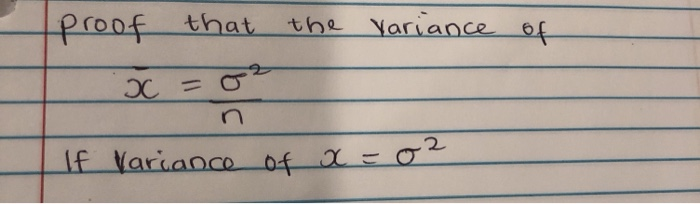 proof that the variance of
x̄ = σ²/n
If variance of x = σ²